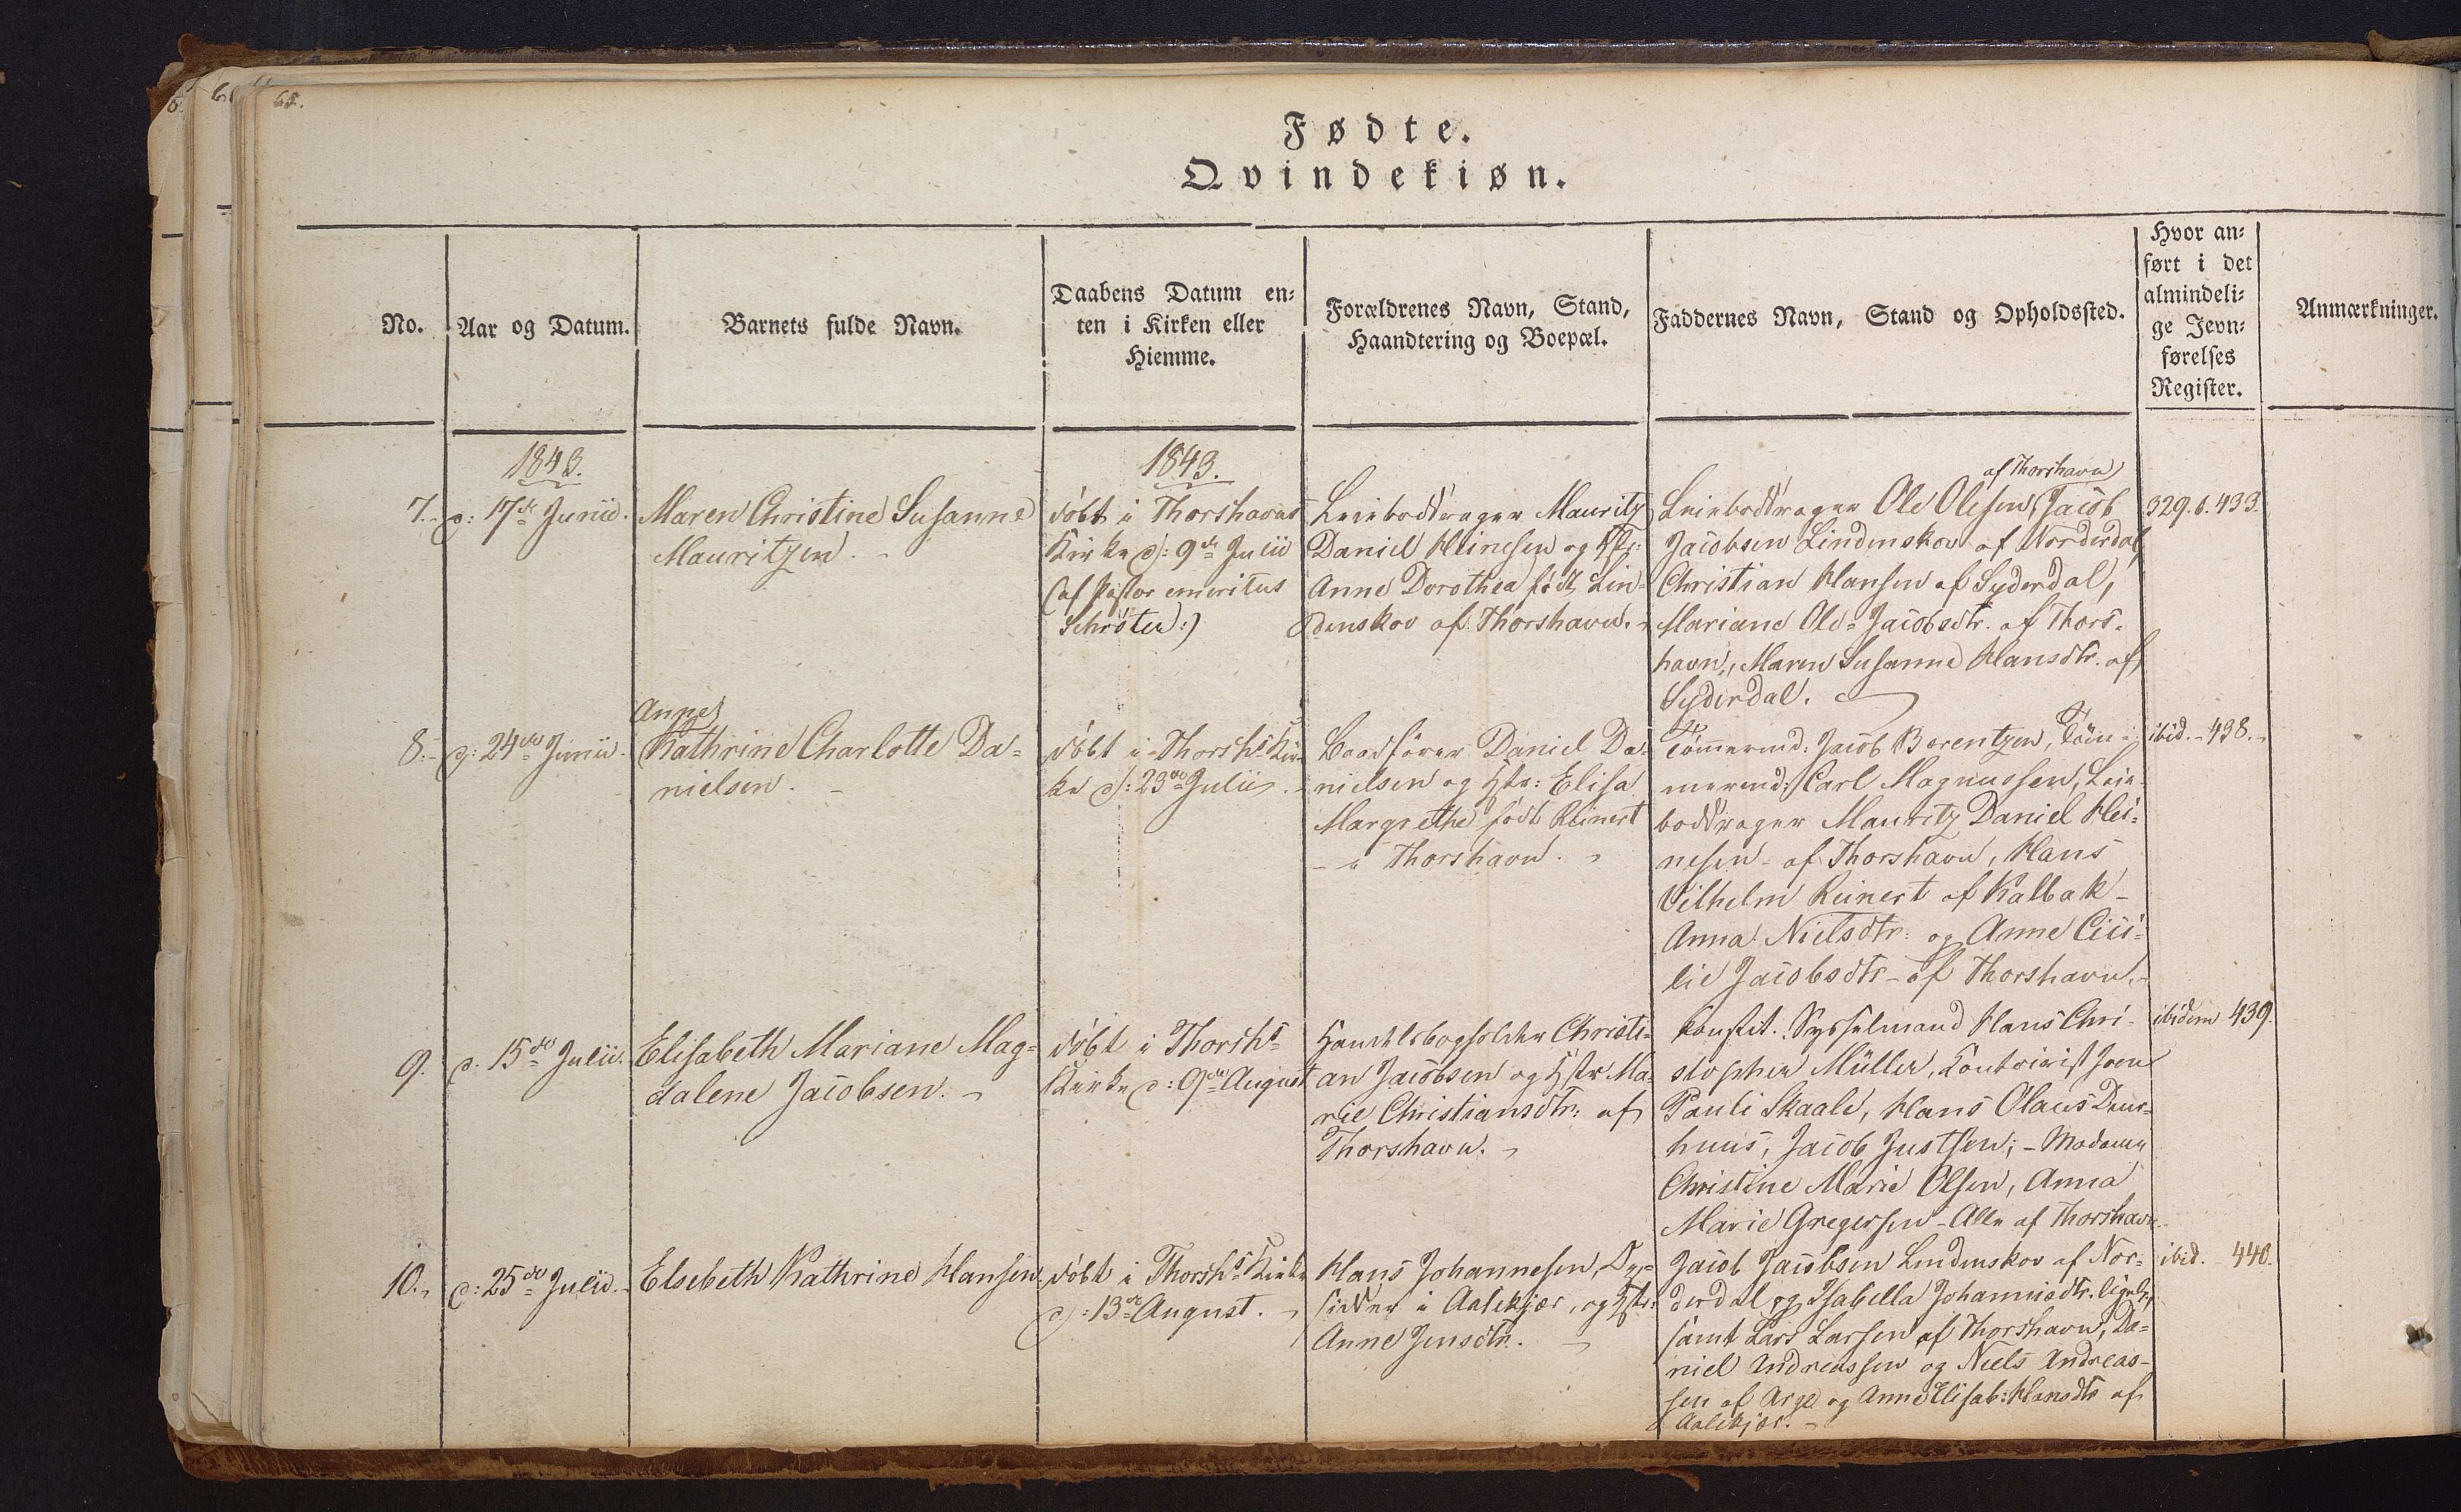 65.
Fødte.
Qvindekiøn.
No.
Aar og Datum.
Barnets fulde Navn.
Taabens Datum en-
ten i Kirken eller
Hiemme.
Forældrenes Navn, Stand,
Haandtering og Boepæl.
Faddernes Navn, Stand og Opholdssted.
Hvor an-
ført i det
almindeli-
ge Jevn-
førelses
Register.
Anmærkninger.
7.
1843.
d: 17de Junii.
Maren Christine Susanne
Mauritzen.
1843.
döbt i Thorshavns
Kirke d: 9de Julii
(af Pastor emeritus
Schröter:)
Leieboddrager Mauritz
Daniel Heinesen og Hstr:
Anne Dorothea födt Lin-
denskov af Thorshavn.
af Thorshavn
Leieboddrager Ole Olesen, Jacob
Jacobsen Lindenskov af Norderdal,
Christian Hansen af Syderdal,
Mariane Ole-Jacobsdtr. af Thors-
havn, Maren Susanne Hansdtr. af
Syderdal.
329. 6. 433.
8.
d: 24de Junii.
Anne
Kathrine Charlotte Da-
nielsen.
döbt i Thorshs Kir-
ke d: 23de Julii.
Baadförer Daniel Da-
nielsen og Hstr: Elisa
Margrethe födt Reinert
i Thorshavn.
Tömmermd: Jacob Berentzen, Töm-
mermd: Carl Magnussen, Leie-
boddrager Mauritz Daniel Hei-
nesen af Thorshavn, Hans
Vilhelm Reinert af Kalbak
Anna Nielsdtr. og Anne Ceci-
lie Jacobsdtr af Thorshavn.
ibid. 438.
9.
d. 15de Julii.
Elisabeth Mariane Mag-
dalene Jacobsen.
döbt i Thorshs
Kirke d: 9de August
Handelsbogholder Christi-
an Jacobsen og Hstr Ma-
rie Christiansdtr: af
Thorshavn.
konstit. Sysselmand Hans Chri-
stopher Müller, Contorist Joen
Pauli Skaale, Hans Olaus
huus, Jacob Justsen; Madame
Christine Marie Olsen, Anna
Marie Gregersen - Alle af Thorshavn
ibidem 439.
10.
d: 25de Julii.
Elsebeth Kathrine Hansen.
döbt i Thorshs Kirke
d: 13de August.
Hans Johannesen, Op-
sidder i Aalekjær, og Hstr:
Anne Jensdtr.
Jacob Jacobsen Lindenskov af Nor-
derdal og Isabella Johannisdtr. ligel.,
samt Lars Larsen af Thorshavn, Da-
niel Andreassen og Niels Andreas-
sen af Arge og Anne Elisab: Hansdtr af
Aalekjær.
ibid. 440.